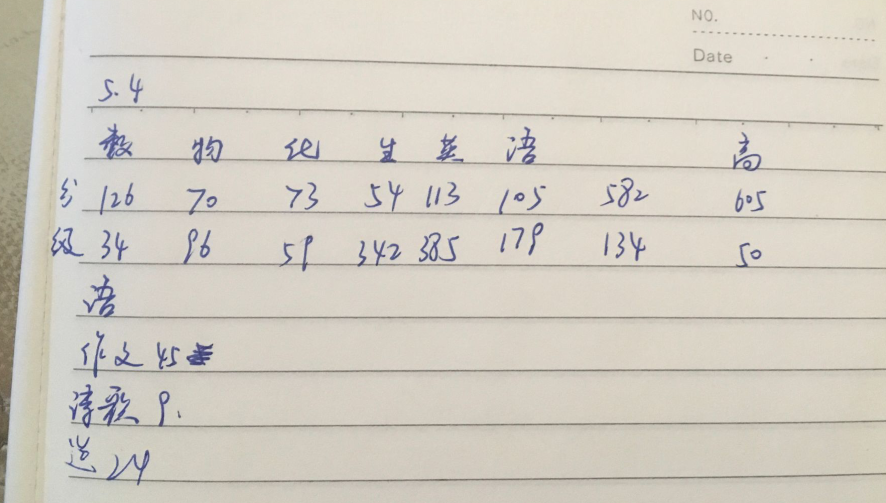 NO.
Date
5.4
数 物 化 生 英 语 高
分 126 70 73 54 113 105 582 605
级 34 96 59 342 385 179 134 50
语
作文 45
诗歌 9.
选 24